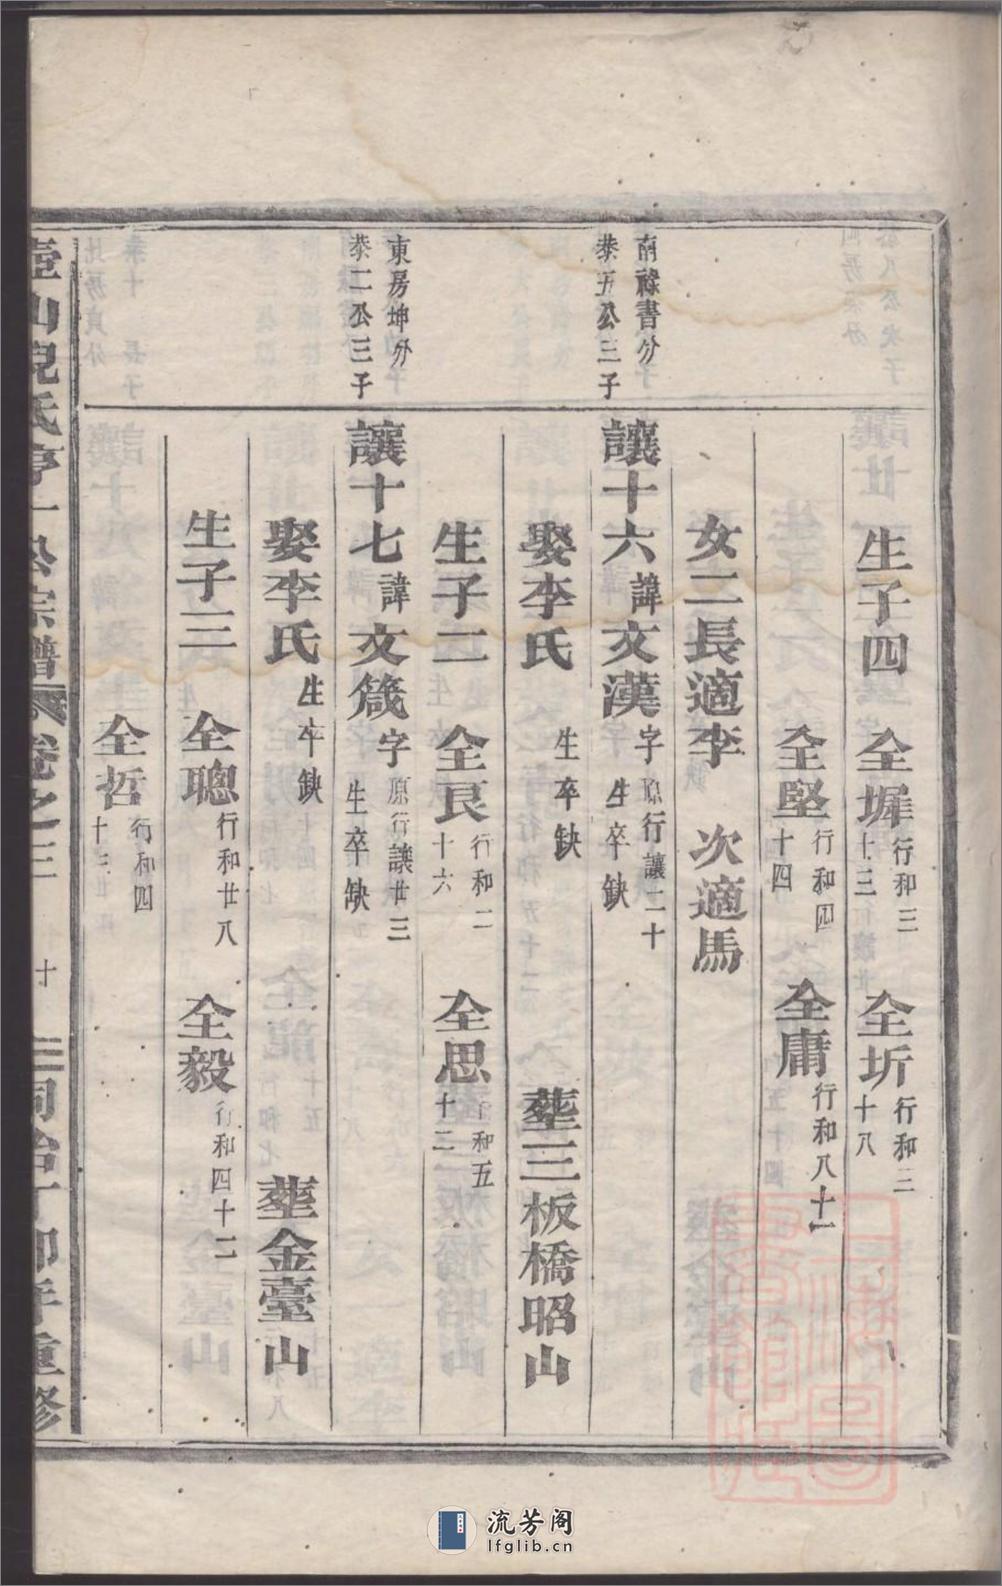 生子四　全墀行和三十三　全圻行和三十八
全堅行和四十四　全庸行和八十一
女二長適李　次適馬
南祿書分
恭五公三子
讓十六諱文漢字原行讓二十生卒缺
娶李氏　生卒缺　葬三板橋昭山
生子二　全良行和二十六　全思行和五十二
東房坤分
恭二公三子
讓十七諱文箴字原行讓廿三生卒缺
娶李氏　生卒缺　葬金臺山
生子三　全聰行和廿八　全毅行和四十二
全哲行和四十三
壺山倪氏亨一公宗譜　卷之三　十　三　同治丁卯年重修
流芳阁
lfglib.cn